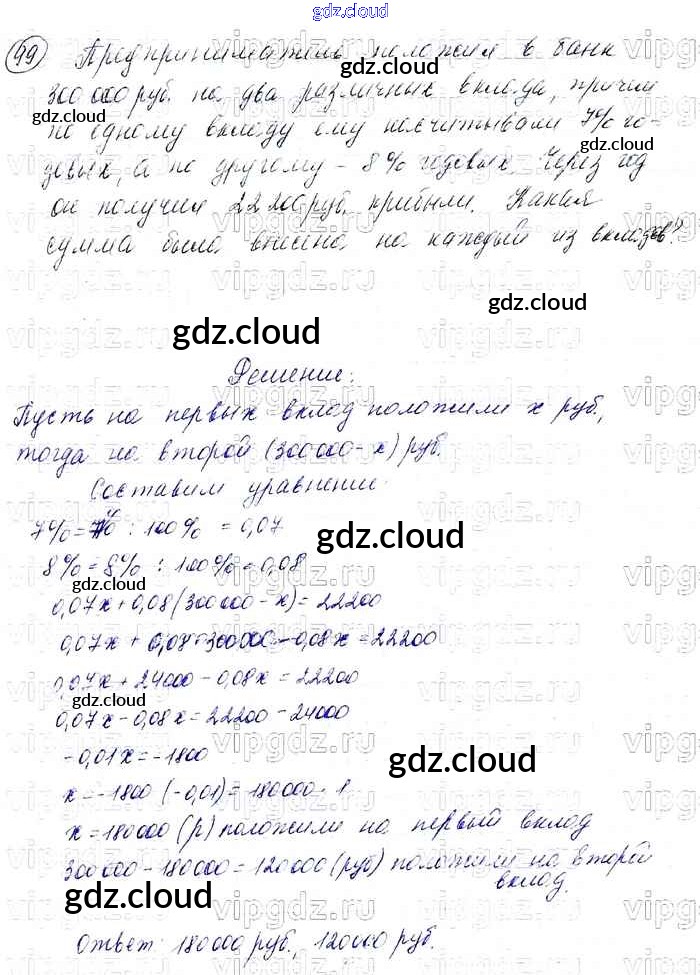 gdz.cloud
99 Предприниматель положил в банк
300 000 руб. на два различных вклада, причем
по одному вкладу ему насчитывали 7% го-
довых, а по другому - 8% годовых. Через год
он получил 22200 руб. прибыли. Какая
сумма была внесена на каждый из вкладов?
Решение:
Пусть на первых вклад положили x руб.,
тогда на второй (300 000 - x) руб.
Составим уравнение.
7% = 7% : 100% = 0,07
8% = 8% : 100% = 0,08
0,07x + 0,08(300 000 - x) = 22200
0,07x + 0,08·300000 - 0,08x = 22200
0,07x + 24000 - 0,08x = 22200
0,07x - 0,08x = 22200 - 24000
-0,01x = -1800
x = -1800 (-0,01) = 180000 · 1
x = 180000 (р) положили на первый вклад
300 000 - 180 000 = 120 000 (руб) положили на второй
вклад.
Ответ: 180 000 руб., 120 000 руб.